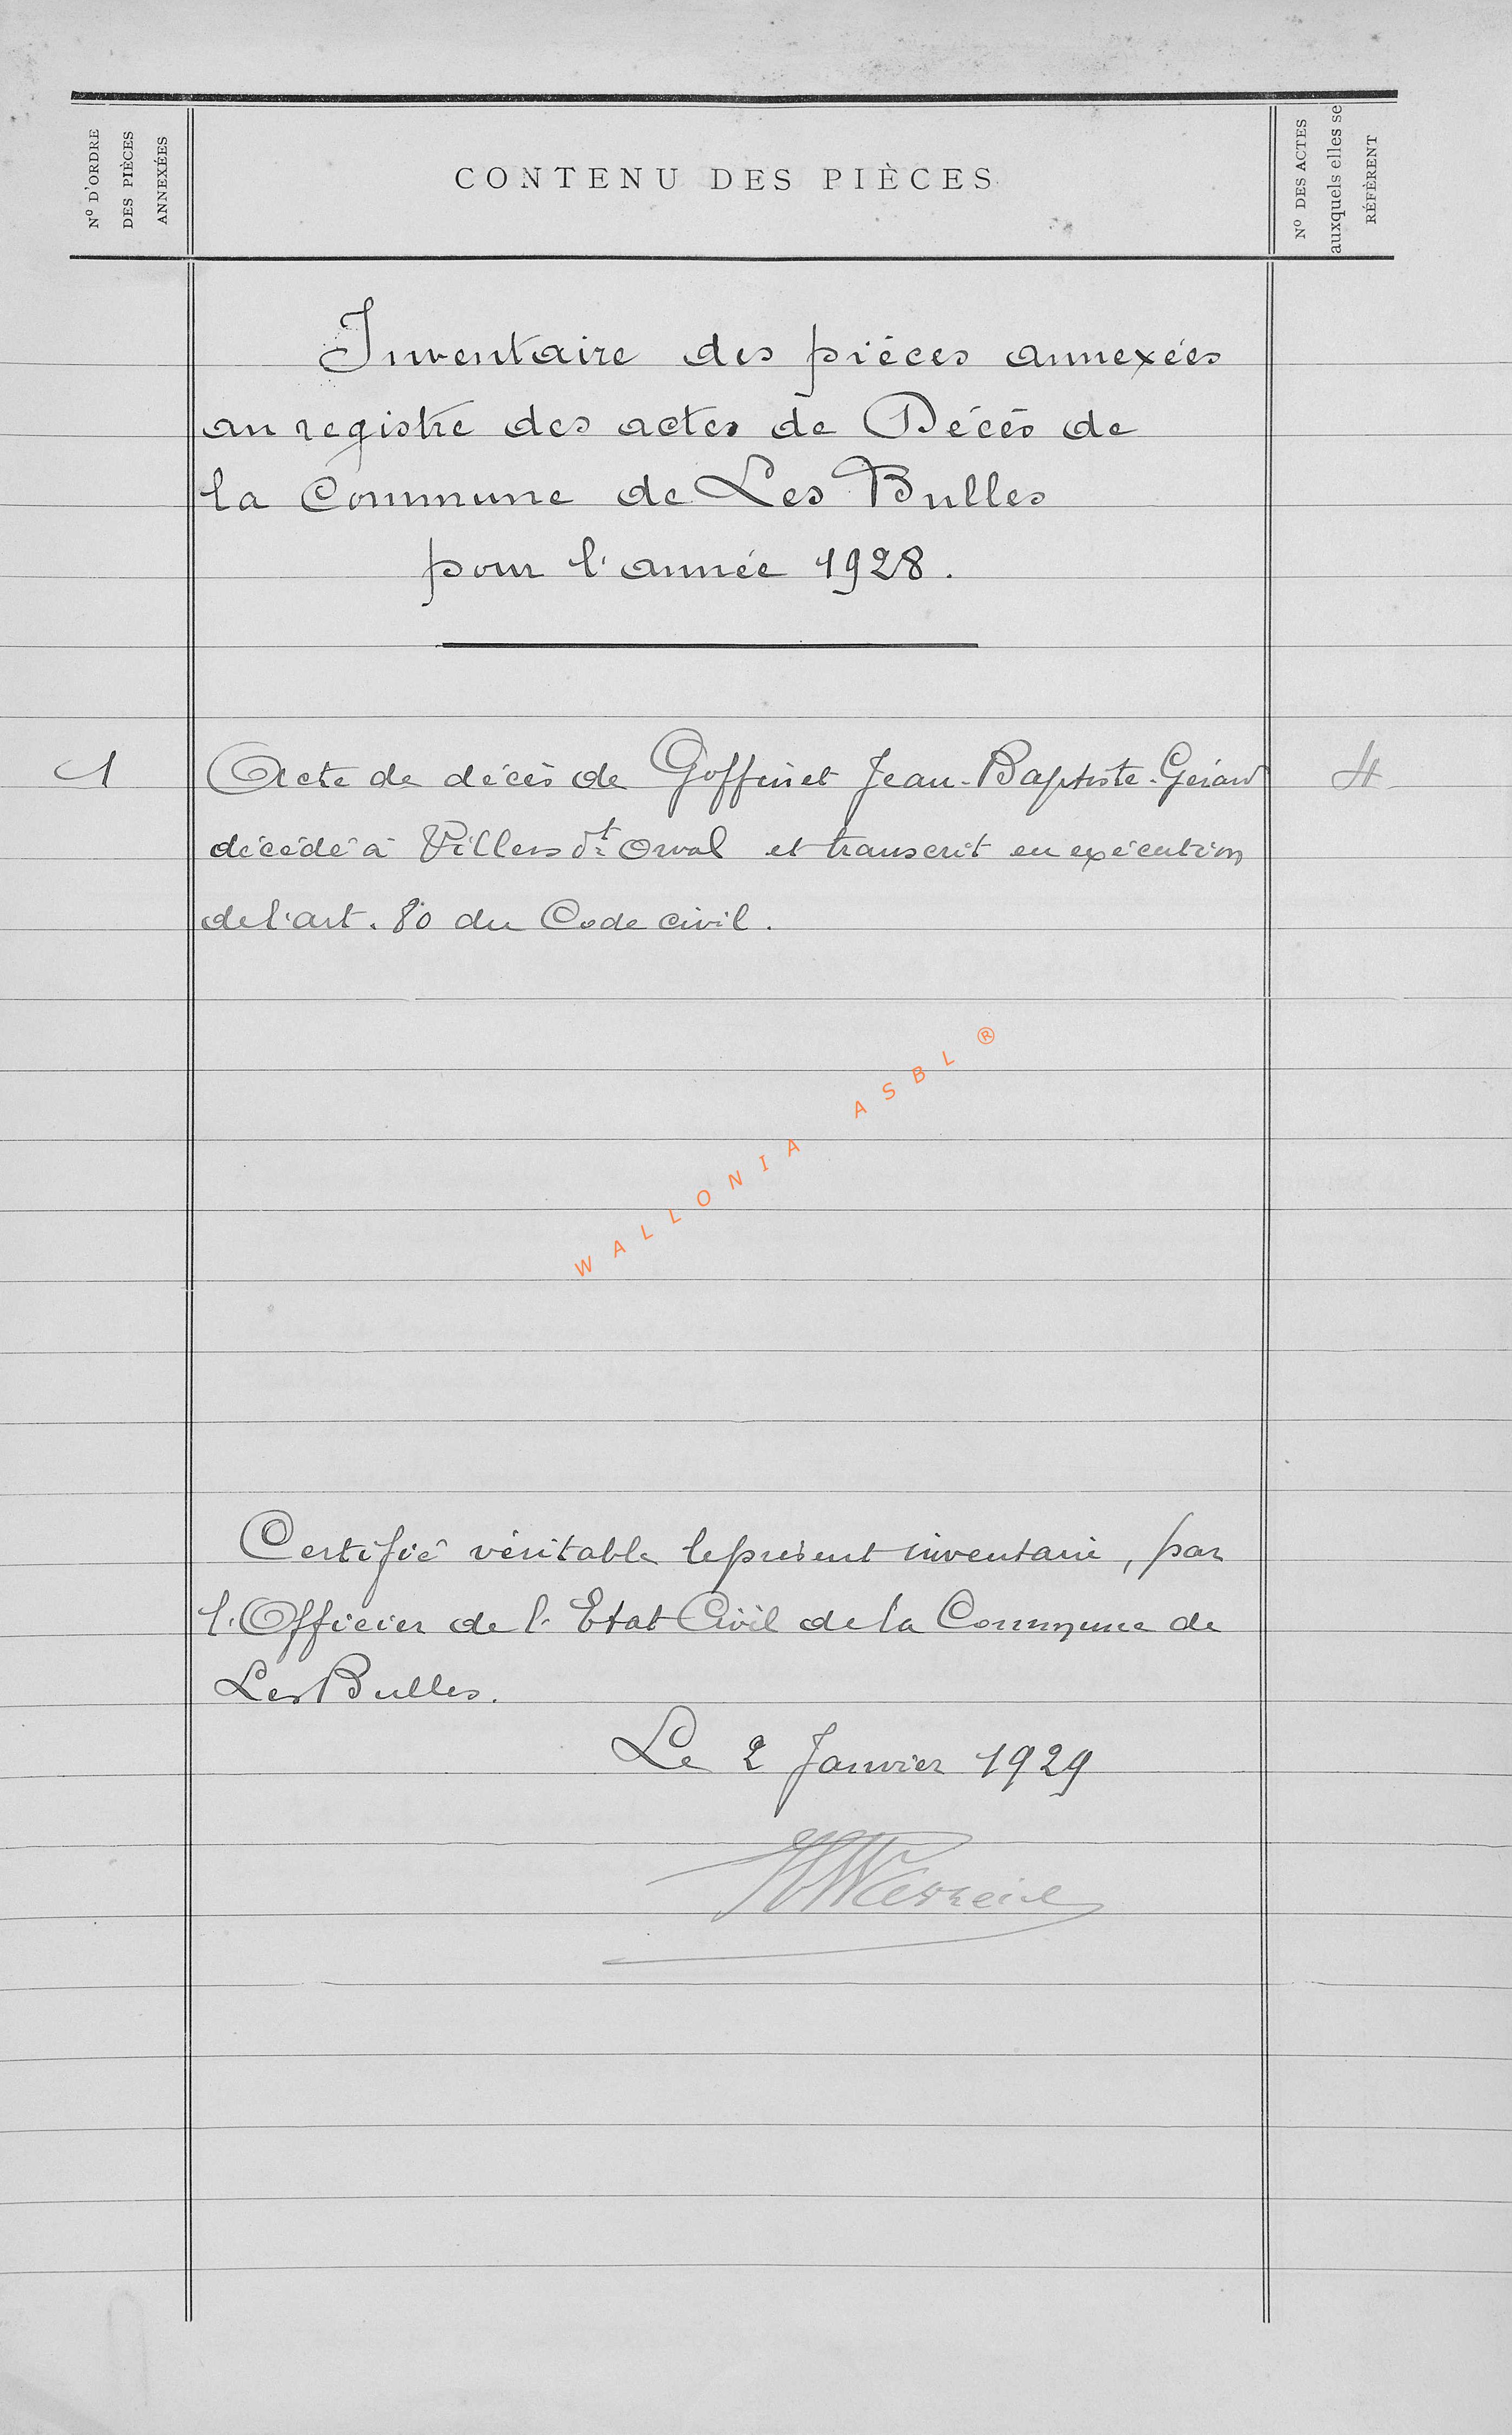 N° D'ORDRE
DES PIÈCES
ANNEXÉES
CONTENU DES PIÈCES
N° DES ACTES
auxquels elles se
RÉFÈRENT
Inventaire des pièces annexées
au registre des actes de Décès de
la Commune de Les Bulles
pour l'année 1928.
1 Acte de décès de Goffinet Jean-Baptiste-Gérard 4
décédé à Villers dt Orval et transcrit en exécution
de l'art. 80 du Code civil.
WALLONIA ASBL ®
Certifié véritable le présent inventaire, par
l'Officier de l'Etat Civil de la Commune de
Les Bulles.
Le 2 Janvier 1929